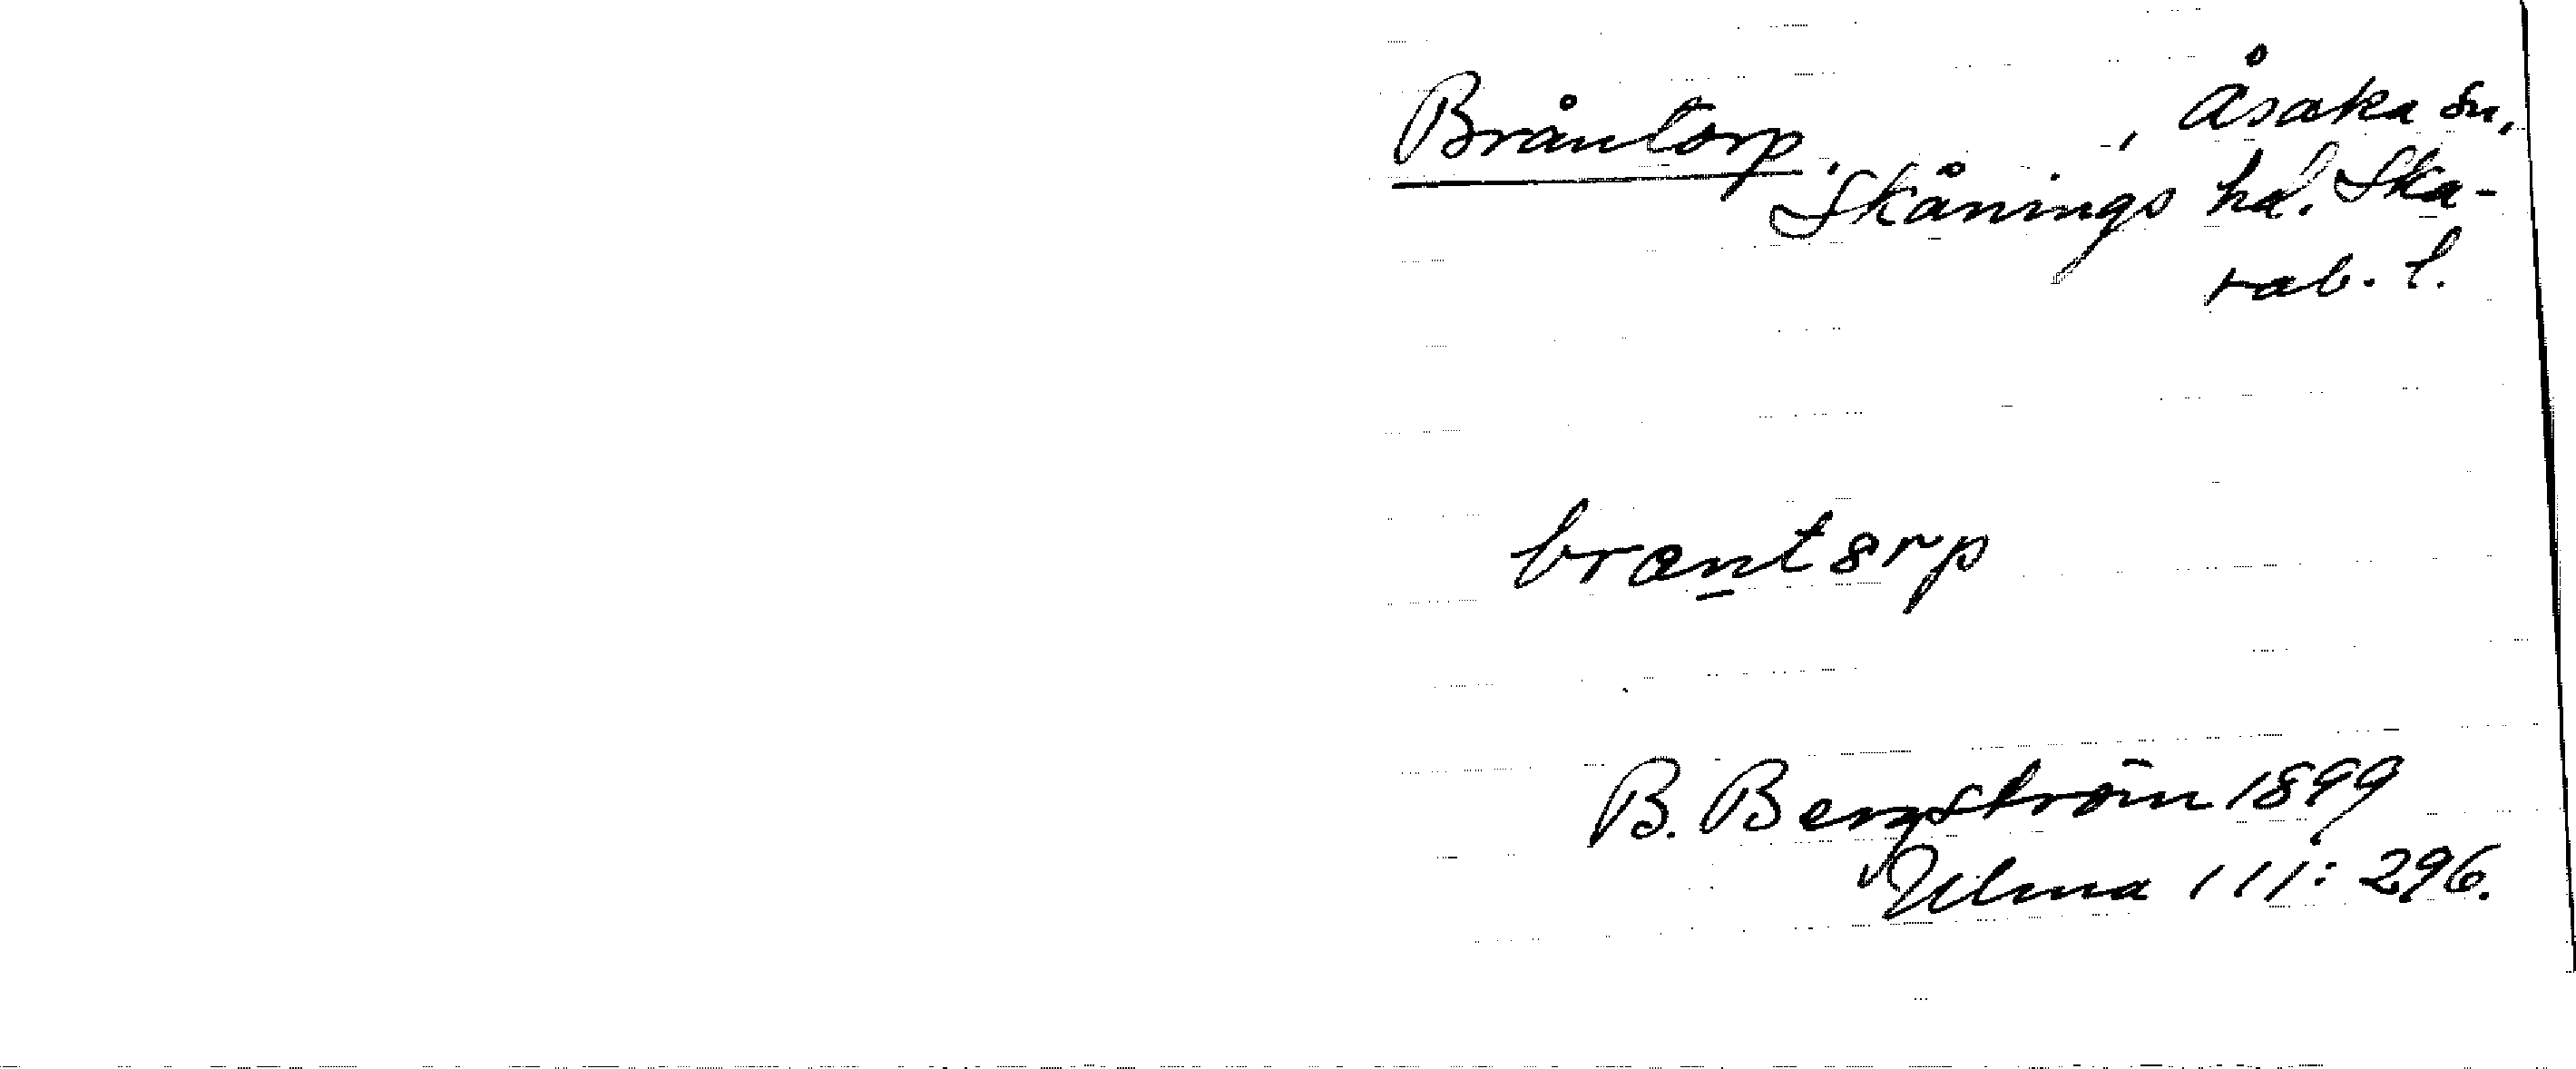 Bråntorp, , Åsaka sn,
Skånings hd. Ska-
rab. l.
brant8rp
B. Bergström 1899
Ulma 111: 296.